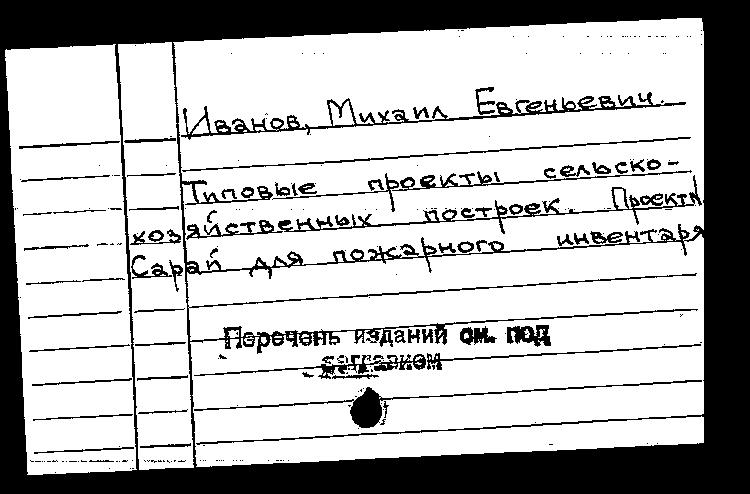 Иванов, Михаил Евгеньевич.
Типовые проекты сельско-
хозяйственных построек. Проекты.
Сарай для пожарного инвентаря
Перечень изданий см. под
заглавием